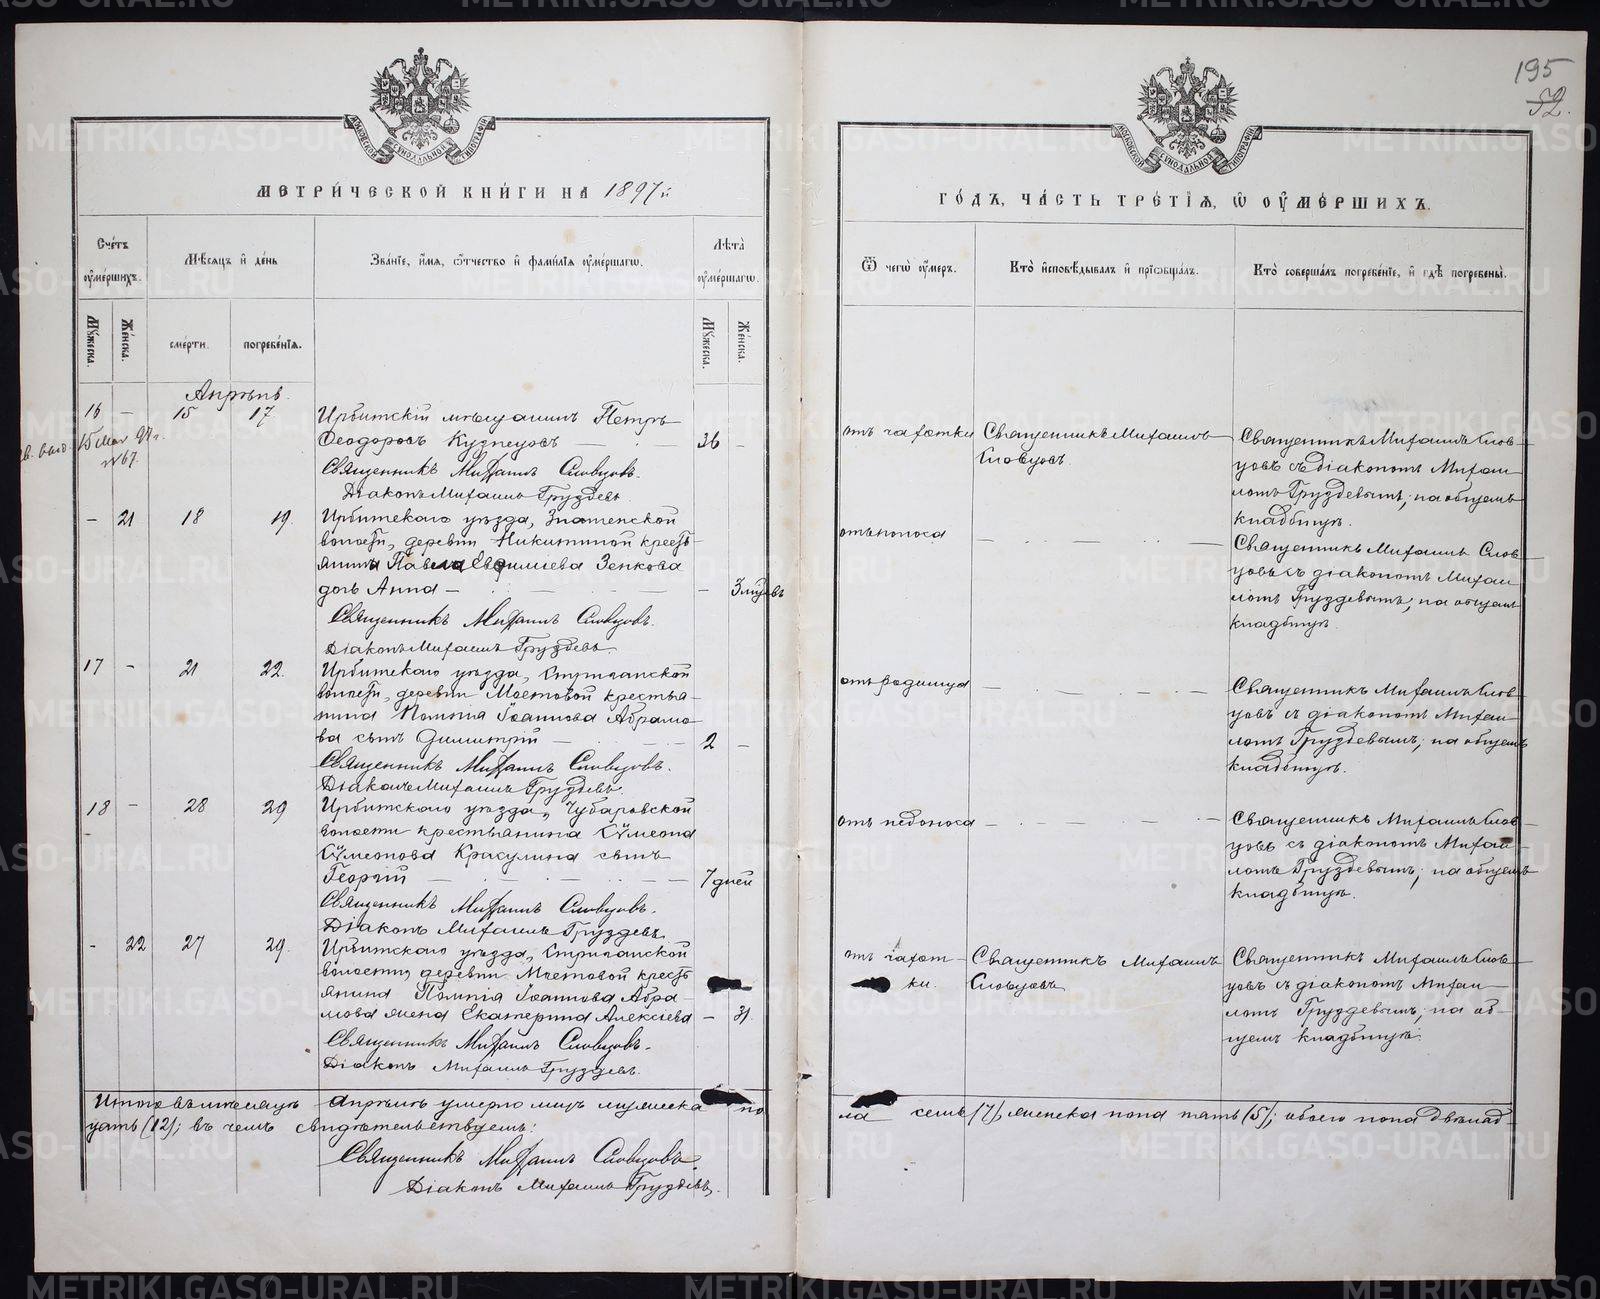 195
52.
МЕТРИ́ЧЕСКОЙ КНИ́ГИ НА 1897й
ГО́ДЪ, ЧА́СТЬ ТРЕ́ТІѦ, Ѿ ОУ҆МЕ́РШИХЪ.
Сче́тъ оу҆ме́ршихъ.
Мѣ́сяцъ и҆ де́нь
Зва́ніе, и҆́мя, ѻ҆́тчество и҆ фами́лія оу҆ме́ршагѡ.
Лѣ́та оу҆ме́ршагѡ.
Ѿ чегѡ̀ оу҆́меръ.
Кто̀ и҆сповѣ́дывалъ и҆ прїѡбща́лъ.
Кто̀ соверша́лъ погребе́ніе, и҆ гдѣ̀ погребены̀.
Му́жеска.
Же́нска.
сме́рти.
погребе́нія.
Му́жеска.
Же́нска.
Апрѣль.
16 - 15 17
Ирбитскій мѣщанинъ Петръ
Ѳеодоровъ Кузнецовъ — 36 -
15 Мая 97г.
№67.
Священникъ Михаилъ Словцовъ.
Діаконъ Михаилъ Груздевъ
отъ чахотки
Священникъ Михаилъ
Словцовъ.
Священникъ Михаилъ Слов-
цовъ съ діакономъ Михаи-
ломъ Груздевымъ; на общемъ
кладбищѣ.
- 21 18 19.
Ирбитскаго уѣзда, Знаменской
волости, деревни Никитиной кресть-
янина Павла Евфиміева Зенкова
дочь Анна — - 3 мѣсяц
Священникъ Михаилъ Словцовъ.
Діаконъ Михаилъ Груздевъ
отъ поноса
Священникъ Михаилъ Слов-
цовъ съ діакономъ Михаи-
ломъ Груздевымъ; на общемъ
кладбищѣ.
17 - 21 22.
Ирбитскаго уѣзда, Стриганской
волости, деревни Мостовой крестья-
нина Помпія Іоаннова Абрамо-
ва сынъ Димитрій — 2 -
Священникъ Михаилъ Словцовъ.
Діаконъ Михаилъ Груздевъ.
отъ родимца
Священникъ Михаилъ Слов-
цовъ съ діакономъ Михаи-
ломъ Груздевымъ; на общемъ
кладбищѣ.
18 - 28 29
Ирбитскаго уѣзда, Чубаровской
волости крестьянина Сѵмеона
Сѵмеонова Красулина сынъ
Георгій — 7 дней
Священникъ Михаилъ Словцовъ.
Діаконъ Михаилъ Груздевъ.
отъ недоноса
Священникъ Михаилъ Слов-
цовъ съ діакономъ Михаи-
ломъ Груздевымъ; на общемъ
кладбищѣ.
- 22 27 29.
Ирбитскаго уѣзда, Стриганской
волости, деревни Мостовой кресть-
янина Помпія Іоаннова Абра-
мова жена Екатерина Алексіева — 31.
Священникъ Михаилъ Словцовъ.
Діаконъ Михаилъ Груздевъ.
отъ чахот-
ки.
Священникъ Михаилъ
Словцовъ
Священникъ Михаилъ Слов-
цовъ съ діакономъ Михаи-
ломъ Груздевымъ; на об-
щемъ кладбищѣ.
Итого въ мѣсяцѣ Апрѣлѣ умерло муж мужеска по
ла семь (7), женска пола пять (5); обоего пола двѣнад-
цать (12); въ чемъ свидѣтельствуемъ:
Священникъ Михаилъ Словцовъ.
Діаконъ Михаилъ Груздевъ.
METRIKI.GASO-URAL.RU